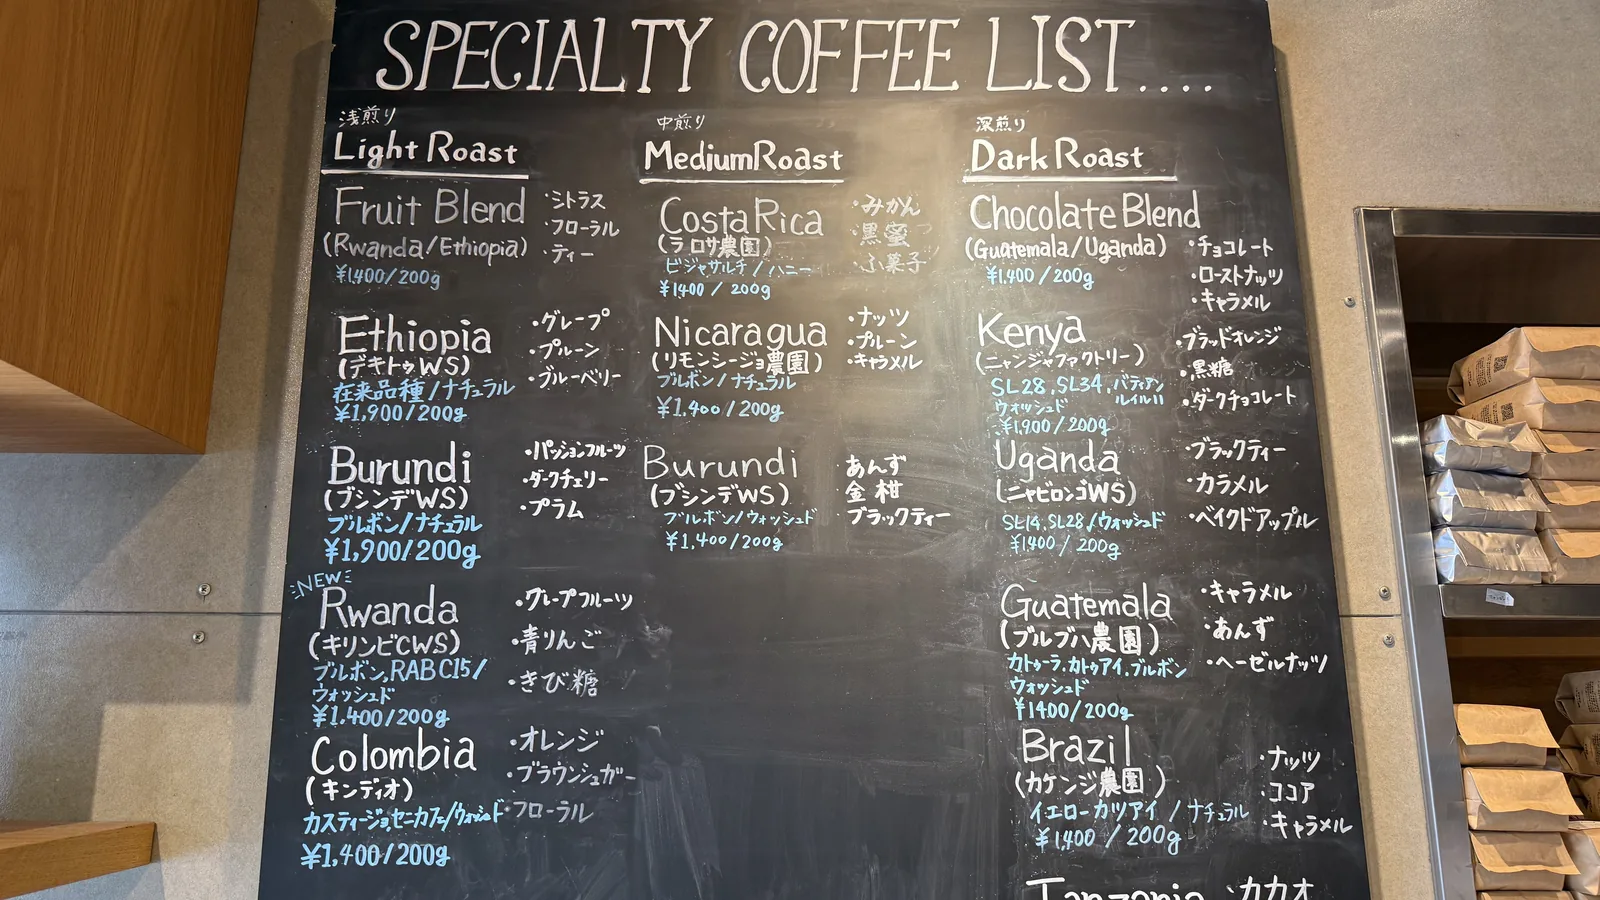 SPECIALTY COFFEE LIST....
浅煎り
Light Roast
Fruit Blend
(Rwanda/Ethiopia)
¥1,400/200g
・シトラス
・フローラル
・ティー
Ethiopia
(デキトゥWS)
在来品種/ナチュラル
¥1,900/200g
・グレープ
・プルーン
・ブルーベリー
Burundi
(ブシンデWS)
ブルボン/ナチュラル
¥1,900/200g
・パッションフルーツ
・ダークチェリー
・プラム
NEW
Rwanda
(キリンビCWS)
ブルボン,RAB C15/
ウォッシュド
¥1,400/200g
・グレープフルーツ
・青りんご
・きび糖
Colombia
(キンディオ)
カスティージョ,セニカフェ/ウォッシュド
¥1,400/200g
・オレンジ
・ブラウンシュガー
・フローラル
中煎り
Medium Roast
Costa Rica
(ラ ロサ農園)
ビジャサルチ/ハニー
¥1400 / 200g
・みかん
・黒蜜
・ふ菓子
Nicaragua
(リモンシージョ農園)
ブルボン/ナチュラル
¥1.400/200g
・ナッツ
・プルーン
・キャラメル
Burundi
(ブシンデWS)
ブルボン/ウォッシュド
¥1,400/200g
あんず
金柑
ブラックティー
深煎り
Dark Roast
Chocolate Blend
(Guatemala/Uganda)
¥1,400/200g
・チョコレート
・ローストナッツ
・キャラメル
Kenya
(ニャンジャファクトリー)
SL28,SL34,バティアン
ルイル11
ウォッシュド
¥1,900/200g
・ブラッドオレンジ
・黒糖
・ダークチョコレート
Uganda
(ニャビロンゴWS)
SL14,SL28/ウォッシュド
¥1400/200g
・ブラックティー
・カラメル
・ベイクドアップル
Guatemala
(ブルブハ農園)
カトゥーラ,カトゥアイ,ブルボン
ウォッシュド
¥1400/200g
・キャラメル
・あんず
・ヘーゼルナッツ
Brazil
(カケンジ農園)
イエローカツアイ/ナチュラル
¥1,400/200g
・ナッツ
・ココア
・キャラメル
Tanzania
・カカオ